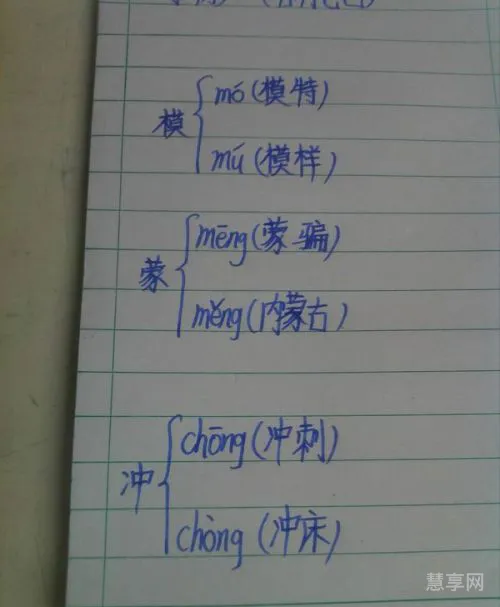 模
mó(模特)
mú(模样)
蒙
mēng(蒙骗)
měng(内蒙古)
冲
chōng(冲刺)
chòng(冲床)
慧享网